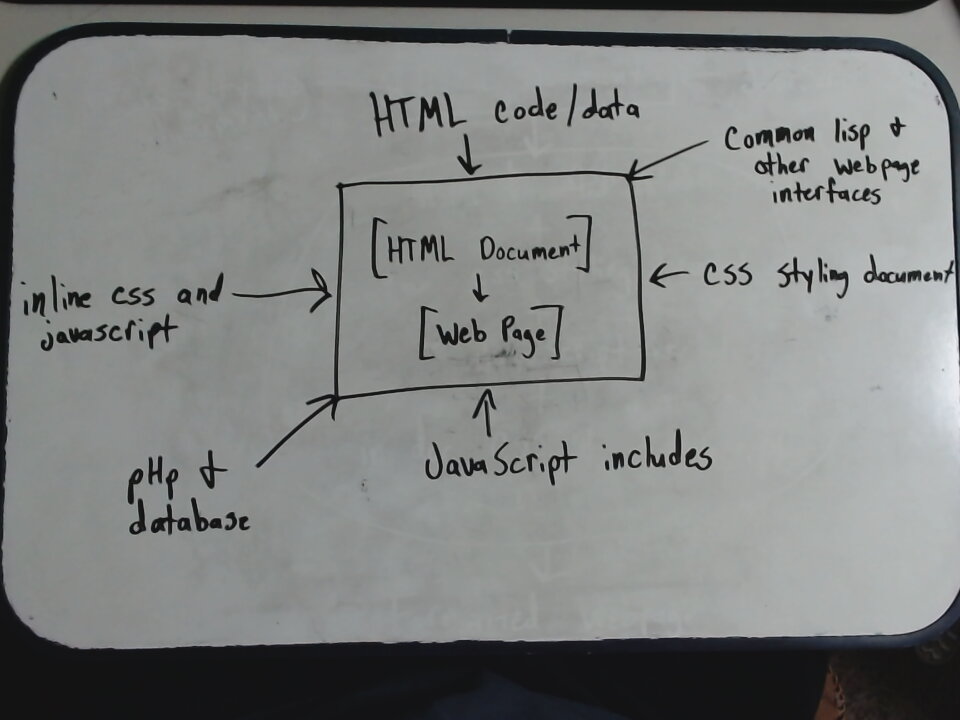 HTML code/data
Common lisp &
other webpage
interfaces
[HTML Document]
[Web Page]
inline css and
javascript
CSS styling document
pHp &
database
JavaScript includes